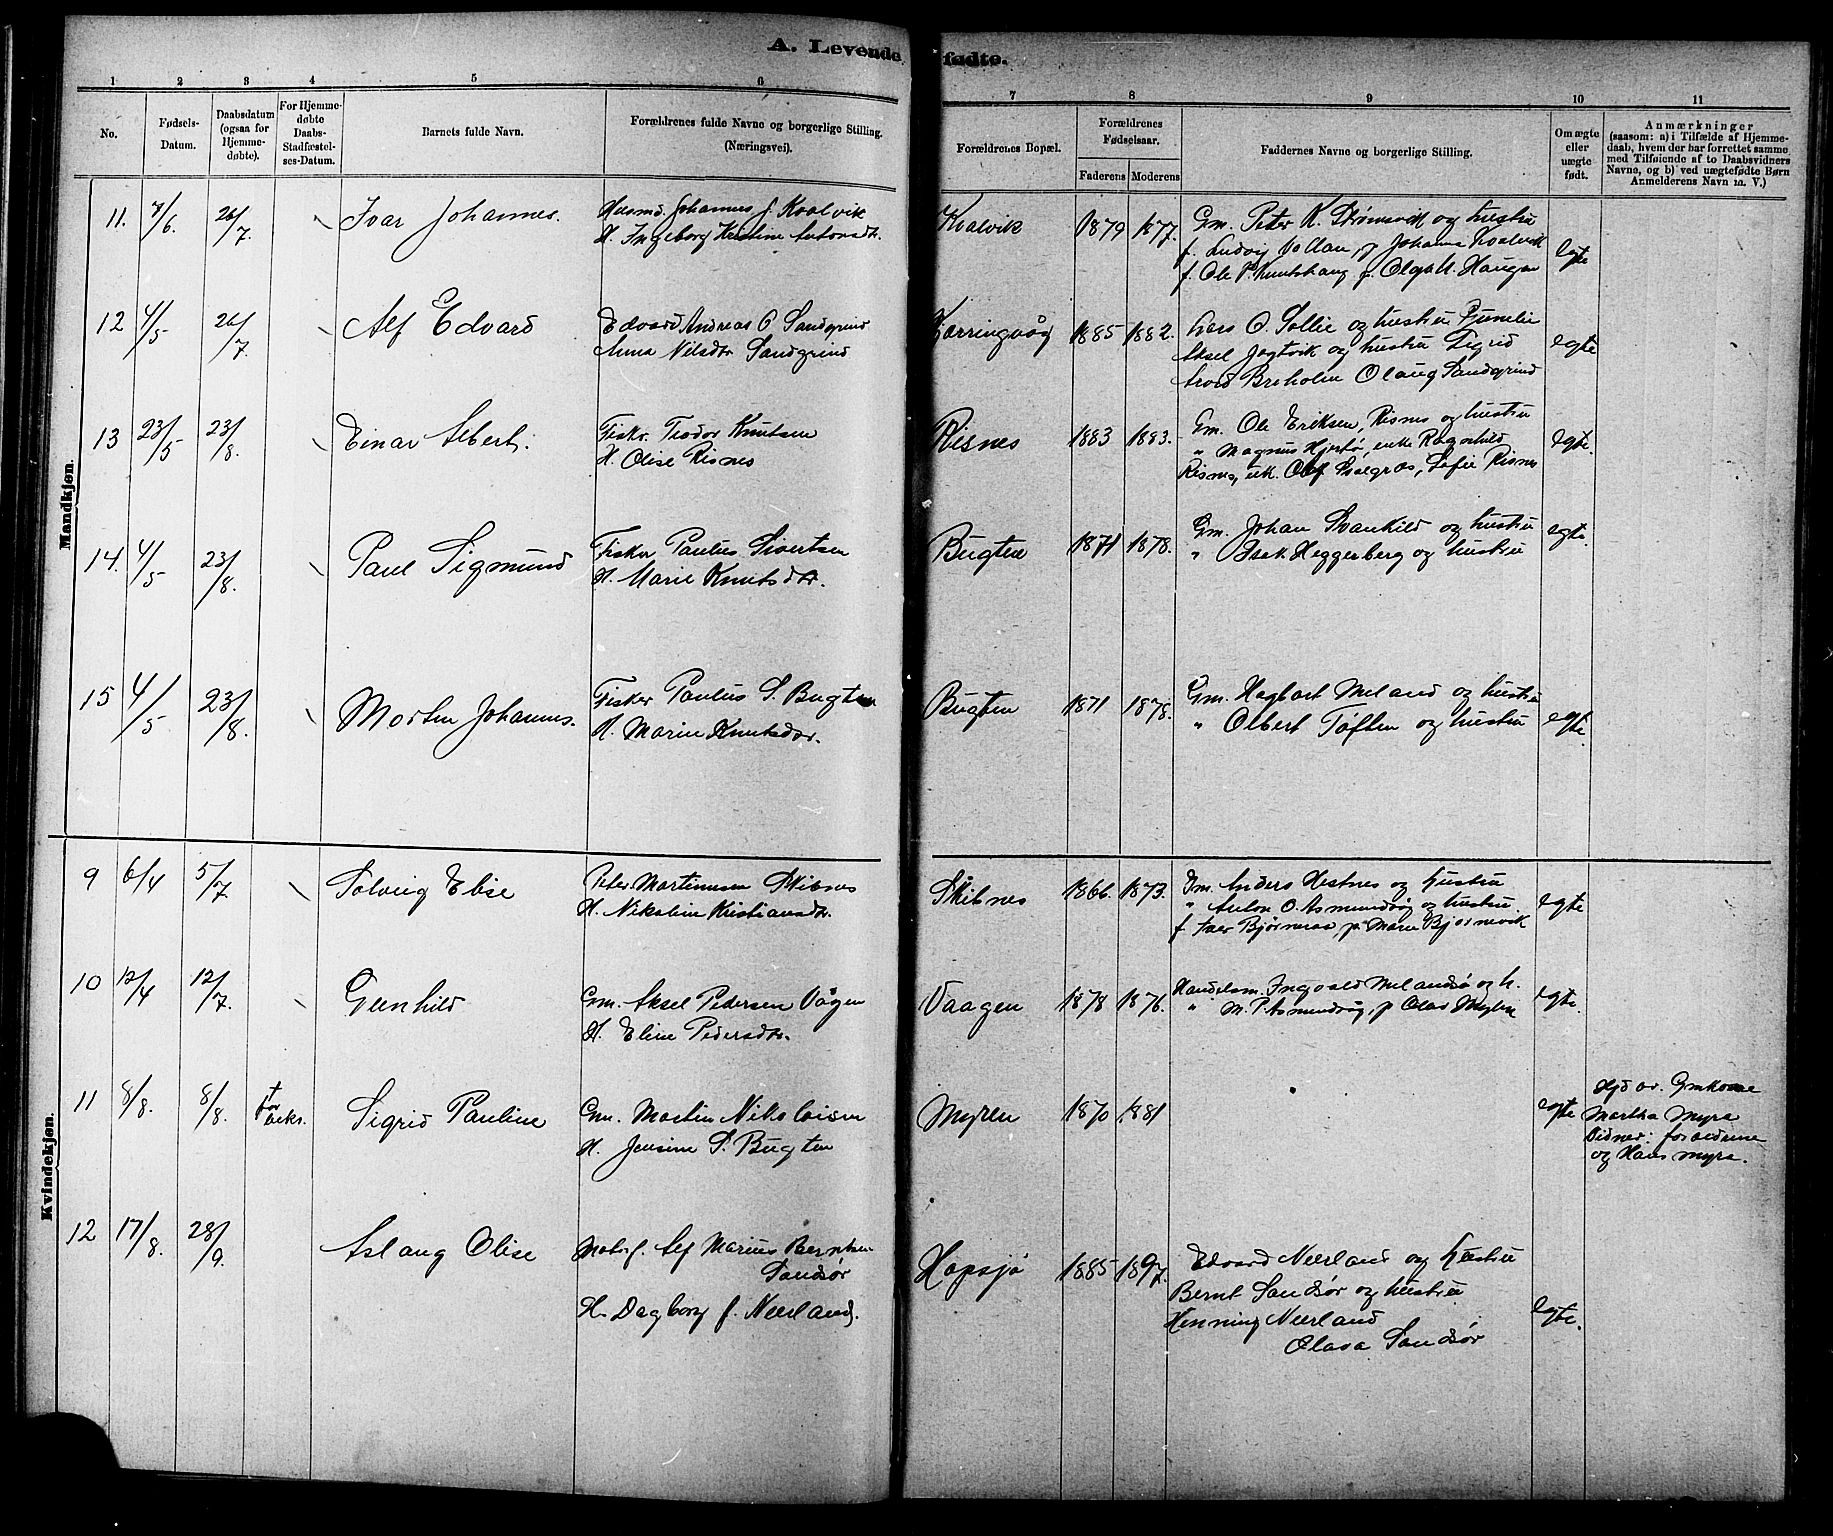 A. Levende fødte.
1 2 3 4 5 6 7 8 9 10 11
No.
Fødsels-
Datum.
Daabsdatum
(ogsaa for
Hjemme-
døbte).
For Hjemme-
døbte
Daabs-
Stadfæstel-
ses-Datum.
Barnets fulde Navn.
Forældrenes fulde Navne og borgerlige Stilling.
(Næringsvei).
Forældrenes Bopæl.
Forældrenes
Fødselsaar.
Faderens Moderens
Faddernes Navne og borgerlige Stilling.
Om ægte
eller
uægte
født.
Anmærkninger
(saasom: a) i Tilfælde af Hjemme-
daab, hvem der har forrettet samme
med Tilføiende af to Daabsvidners
Navne, og b) ved uægtefødte Børn
Anmelderens Navn m. V.)
Mandkjøn.
11. 7/6. 26/7. Ivar Johannes.
Husmd. Johannes J. Kvalvik
H. Ingeborg Kristine Antonsdtr.
Kvalvik 1879 1877.
Gm. Peter K. Strømsvik og hustru
f. Ludvig Vollan, p Johanna Kvalvik
f. Ole P. p. Olga M. Haugen
egte
12 4/5 26/7. Alf Edvard
Edvard Andreas O Sandgrind
Anna Nilsdtr Sandgrind
Korringvåg 1885 1882.
Lars O. Sollie og hustru Gunelie
Aksel Jøgtvik og hustru Sigrid
Arvid Breholm Olaug Sandgrind
egte
13 23/5 23/8. Einar Albert.
Fisker Teodor Knutsen
H. Olise Risnes
Risnes 1883 1883.
Gm. Ole Eriksen, Risnes og hustru
" Magnus Hjertø, enke Ragnhild
Risnes, uk. Olaf Solgræs, Sofie Risnes
egte.
14. 4/5 23/8. Paul Sigmund
Fisker Paulus Sivertsen
H. Marie Knutsdtr.
Bugten 1871 1878.
Gm. Johan Svankild og hustru
" Isak Heggerberg og hustru
egte.
15 4/5 23/8. Morten Johannes.
Fisker Paulus S. Bugten
H. Marie Knutsdtr.
Bugten 1871 1878.
Gm. Hagbart Meland og hustru
" Olbert Tøften og hustru
egte.
Kvindekjøn.
9 6/4 5/7 Solveig Elise
Peter Martinusen Skibnes
H. Nikoline Kristiansdtr.
Skibnes 1866. 1873.
Gm. Anders Hestnes og hustru
" Anton O. Asmundvåg og hustru
f. Iver Bjørneraa, p. Marie Bjørnevik
egte
10 12/4 12/7. Gunhild
Gm. Aksel Pedersen Vågen
H. Eline Pedersdtr.
Vaagen 1878 1876.
Handelsm. Ingvald Melandsø og h.
" M. P. Asmundvåg, p Olav Myhre
egte.
11 8/8. 8/8. Sigrid Pauline
Gm. Martin Nikolaisen
H. Jensine S. Bugten
Myren 1870 1881
egte
Hjd av. Gmkone
Martha Myra
Vidner: forældrene
og Hans Myra.
12 17/8. 28/9. Aslaug Olise
Motorf. Alf Marius Berntsen
Sandsør
H. Dagborg f. Nærland.
Hopsjø 1885 1897.
Edvard Nærland og hustru
Bernt Sandsør og hustru
Henning Nærland
Olava Sandsør
egte.